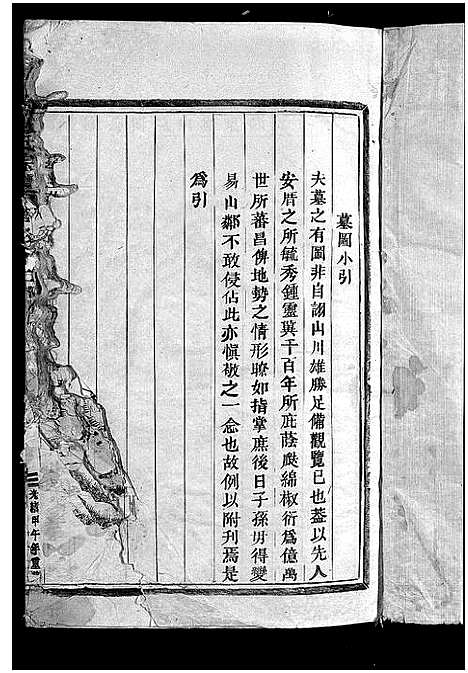 墓圖小引
夫墓之有圖非自詡山川雄勝足備觀覽已也葢以先人
安厝之所毓秀鍾靈冀千百年所庇蔭瓞綿椒衍為億萬
世所蕃昌俾地勢之情形暸如指掌庶後日子孫毋得變
易山鄰不敢侵佔此亦愼敬之一念也故例以附刊焉是
為引
光緒甲午年重